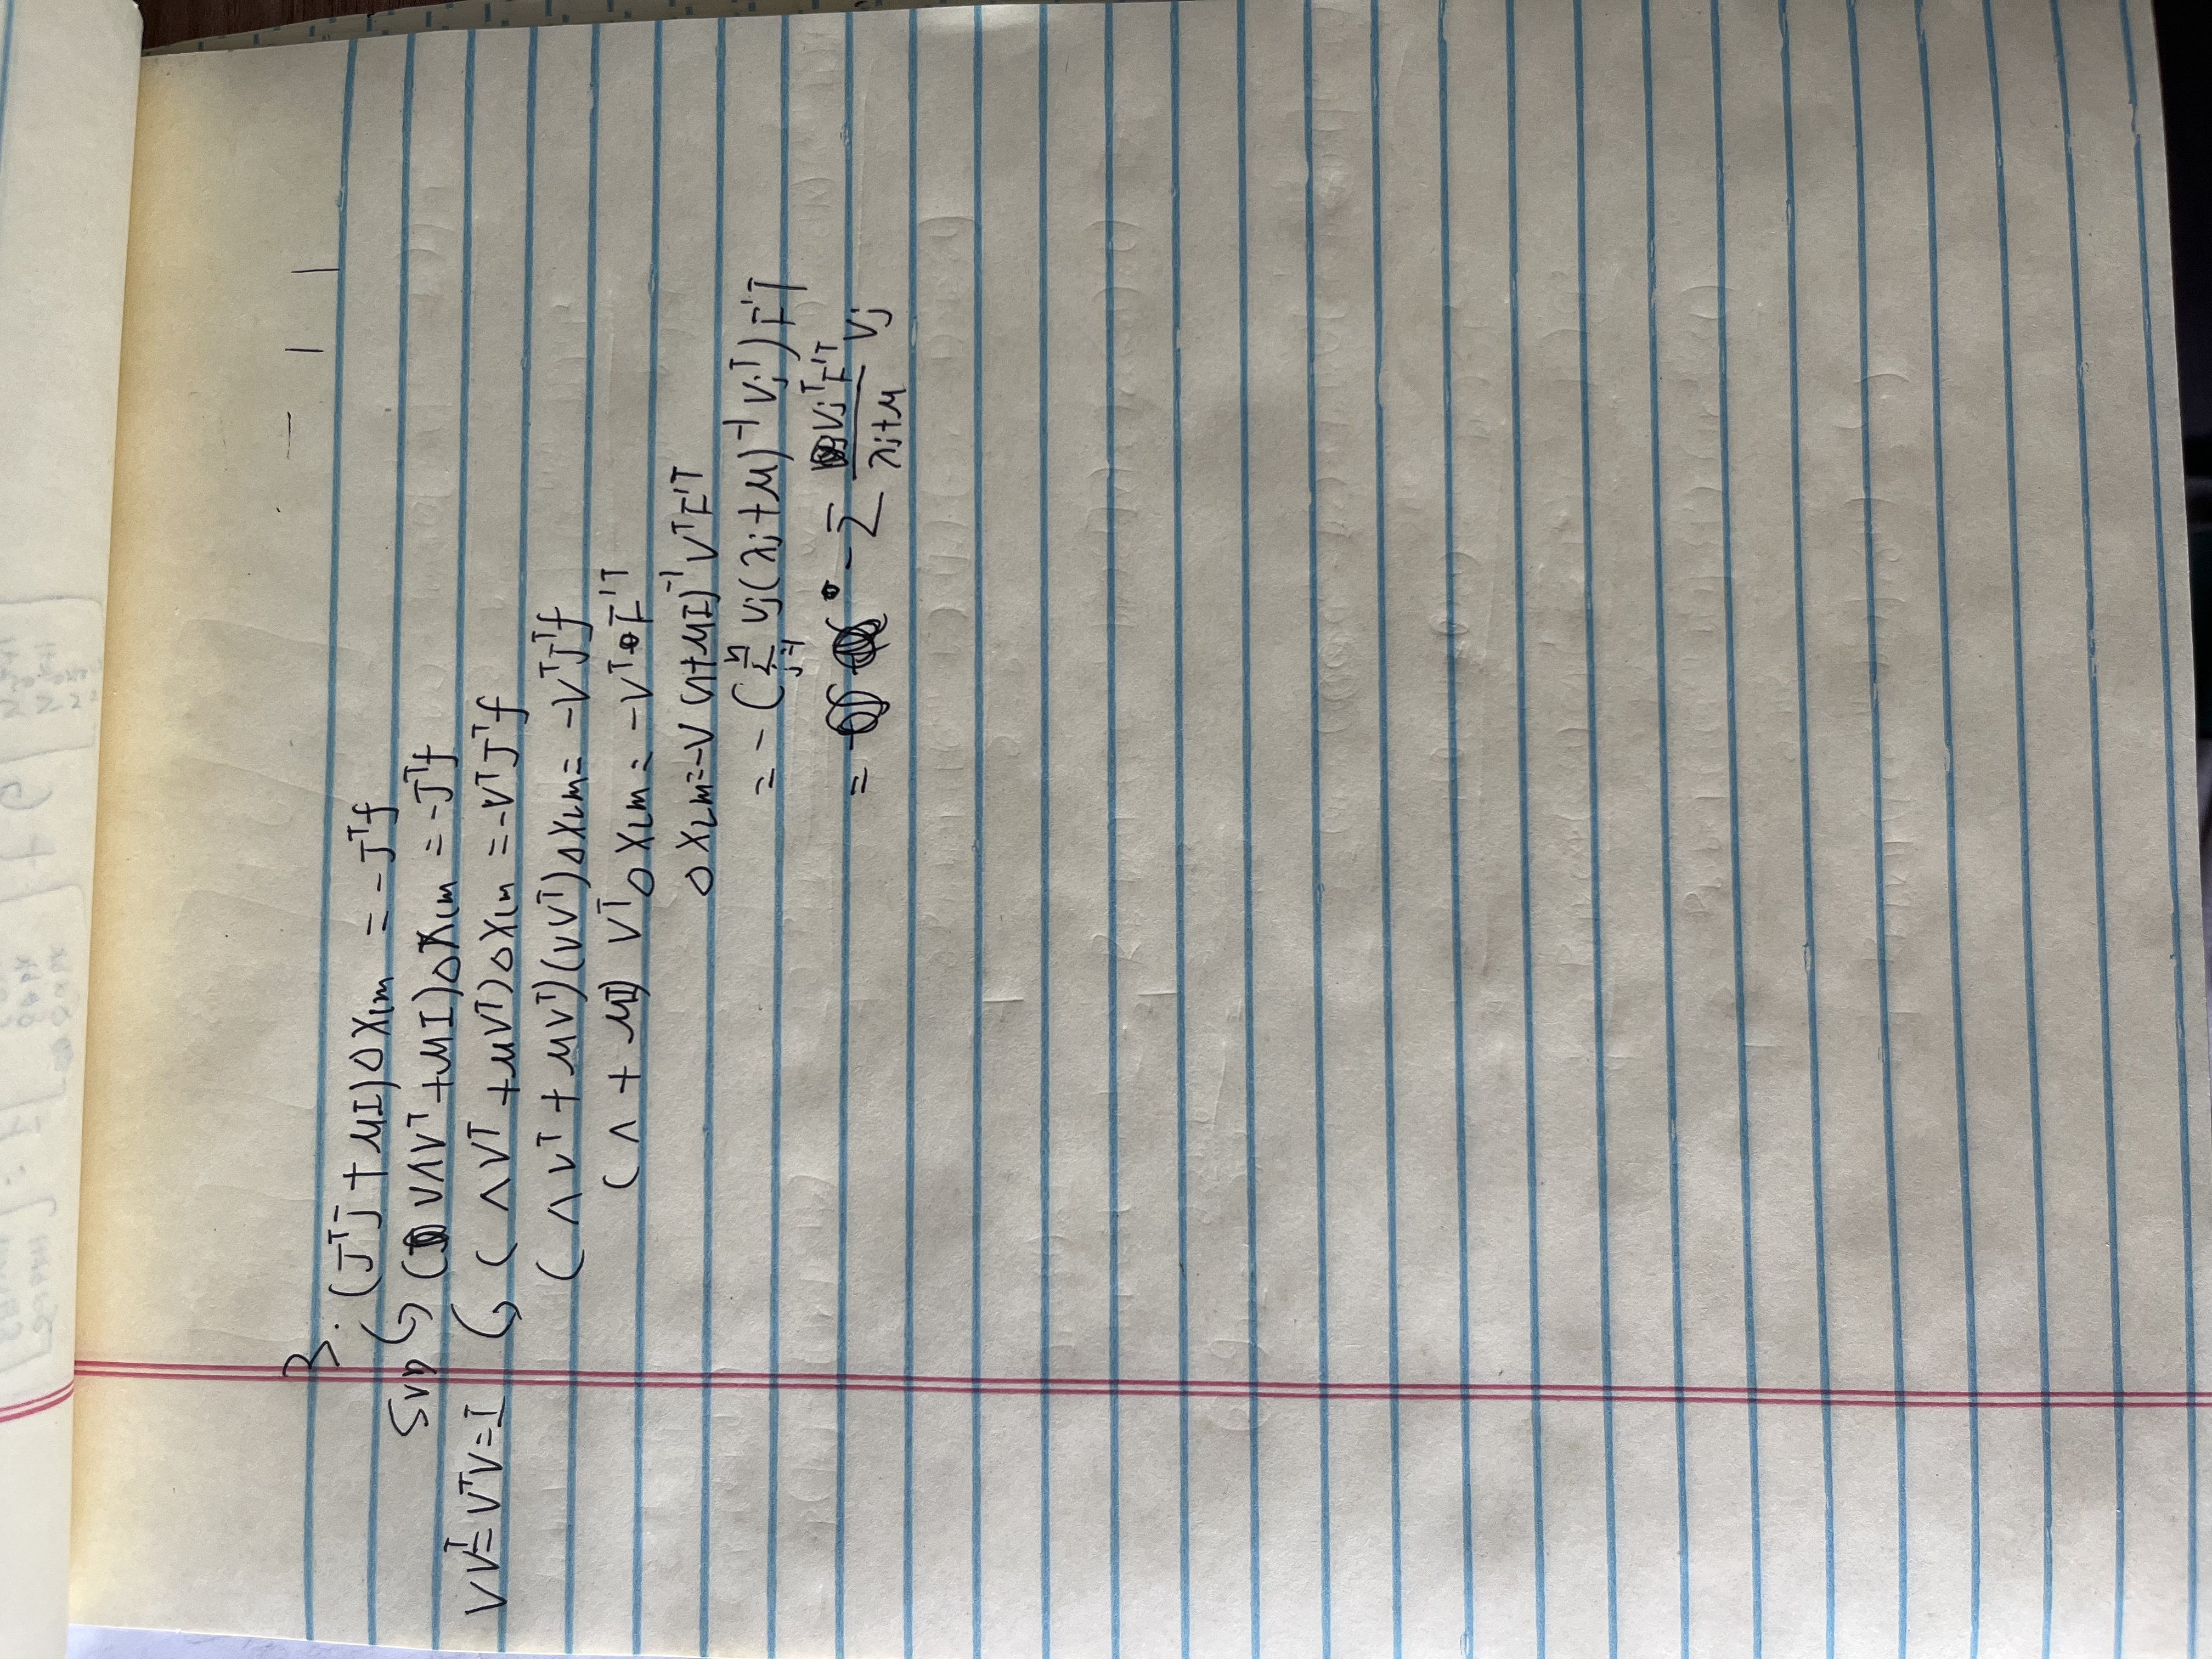 3.
(JᵀJ + μI)ΔXₗₘ = -Jᵀf
SVD (VΛVᵀ + μI)ΔXₗₘ = -Jᵀf
VVᵀ = VᵀV = I (ΛVᵀ + μVᵀ)ΔXₗₘ = -VᵀJᵀf
(ΛVᵀ + μVᵀ)(VVᵀ)ΔX_Lm = -VᵀJᵀf
(Λ + μI) VᵀΔX_Lm = -VᵀF'ᵀ
ΔX_Lm = -V(Λ+μI)⁻¹VᵀF'ᵀ
= -(∑ⁿⱼ₌₁ Vⱼ(λⱼ+μ)⁻¹Vⱼᵀ)F'ᵀ
= -∑ (VⱼᵀF'ᵀ)/(λⱼ+μ) Vⱼ